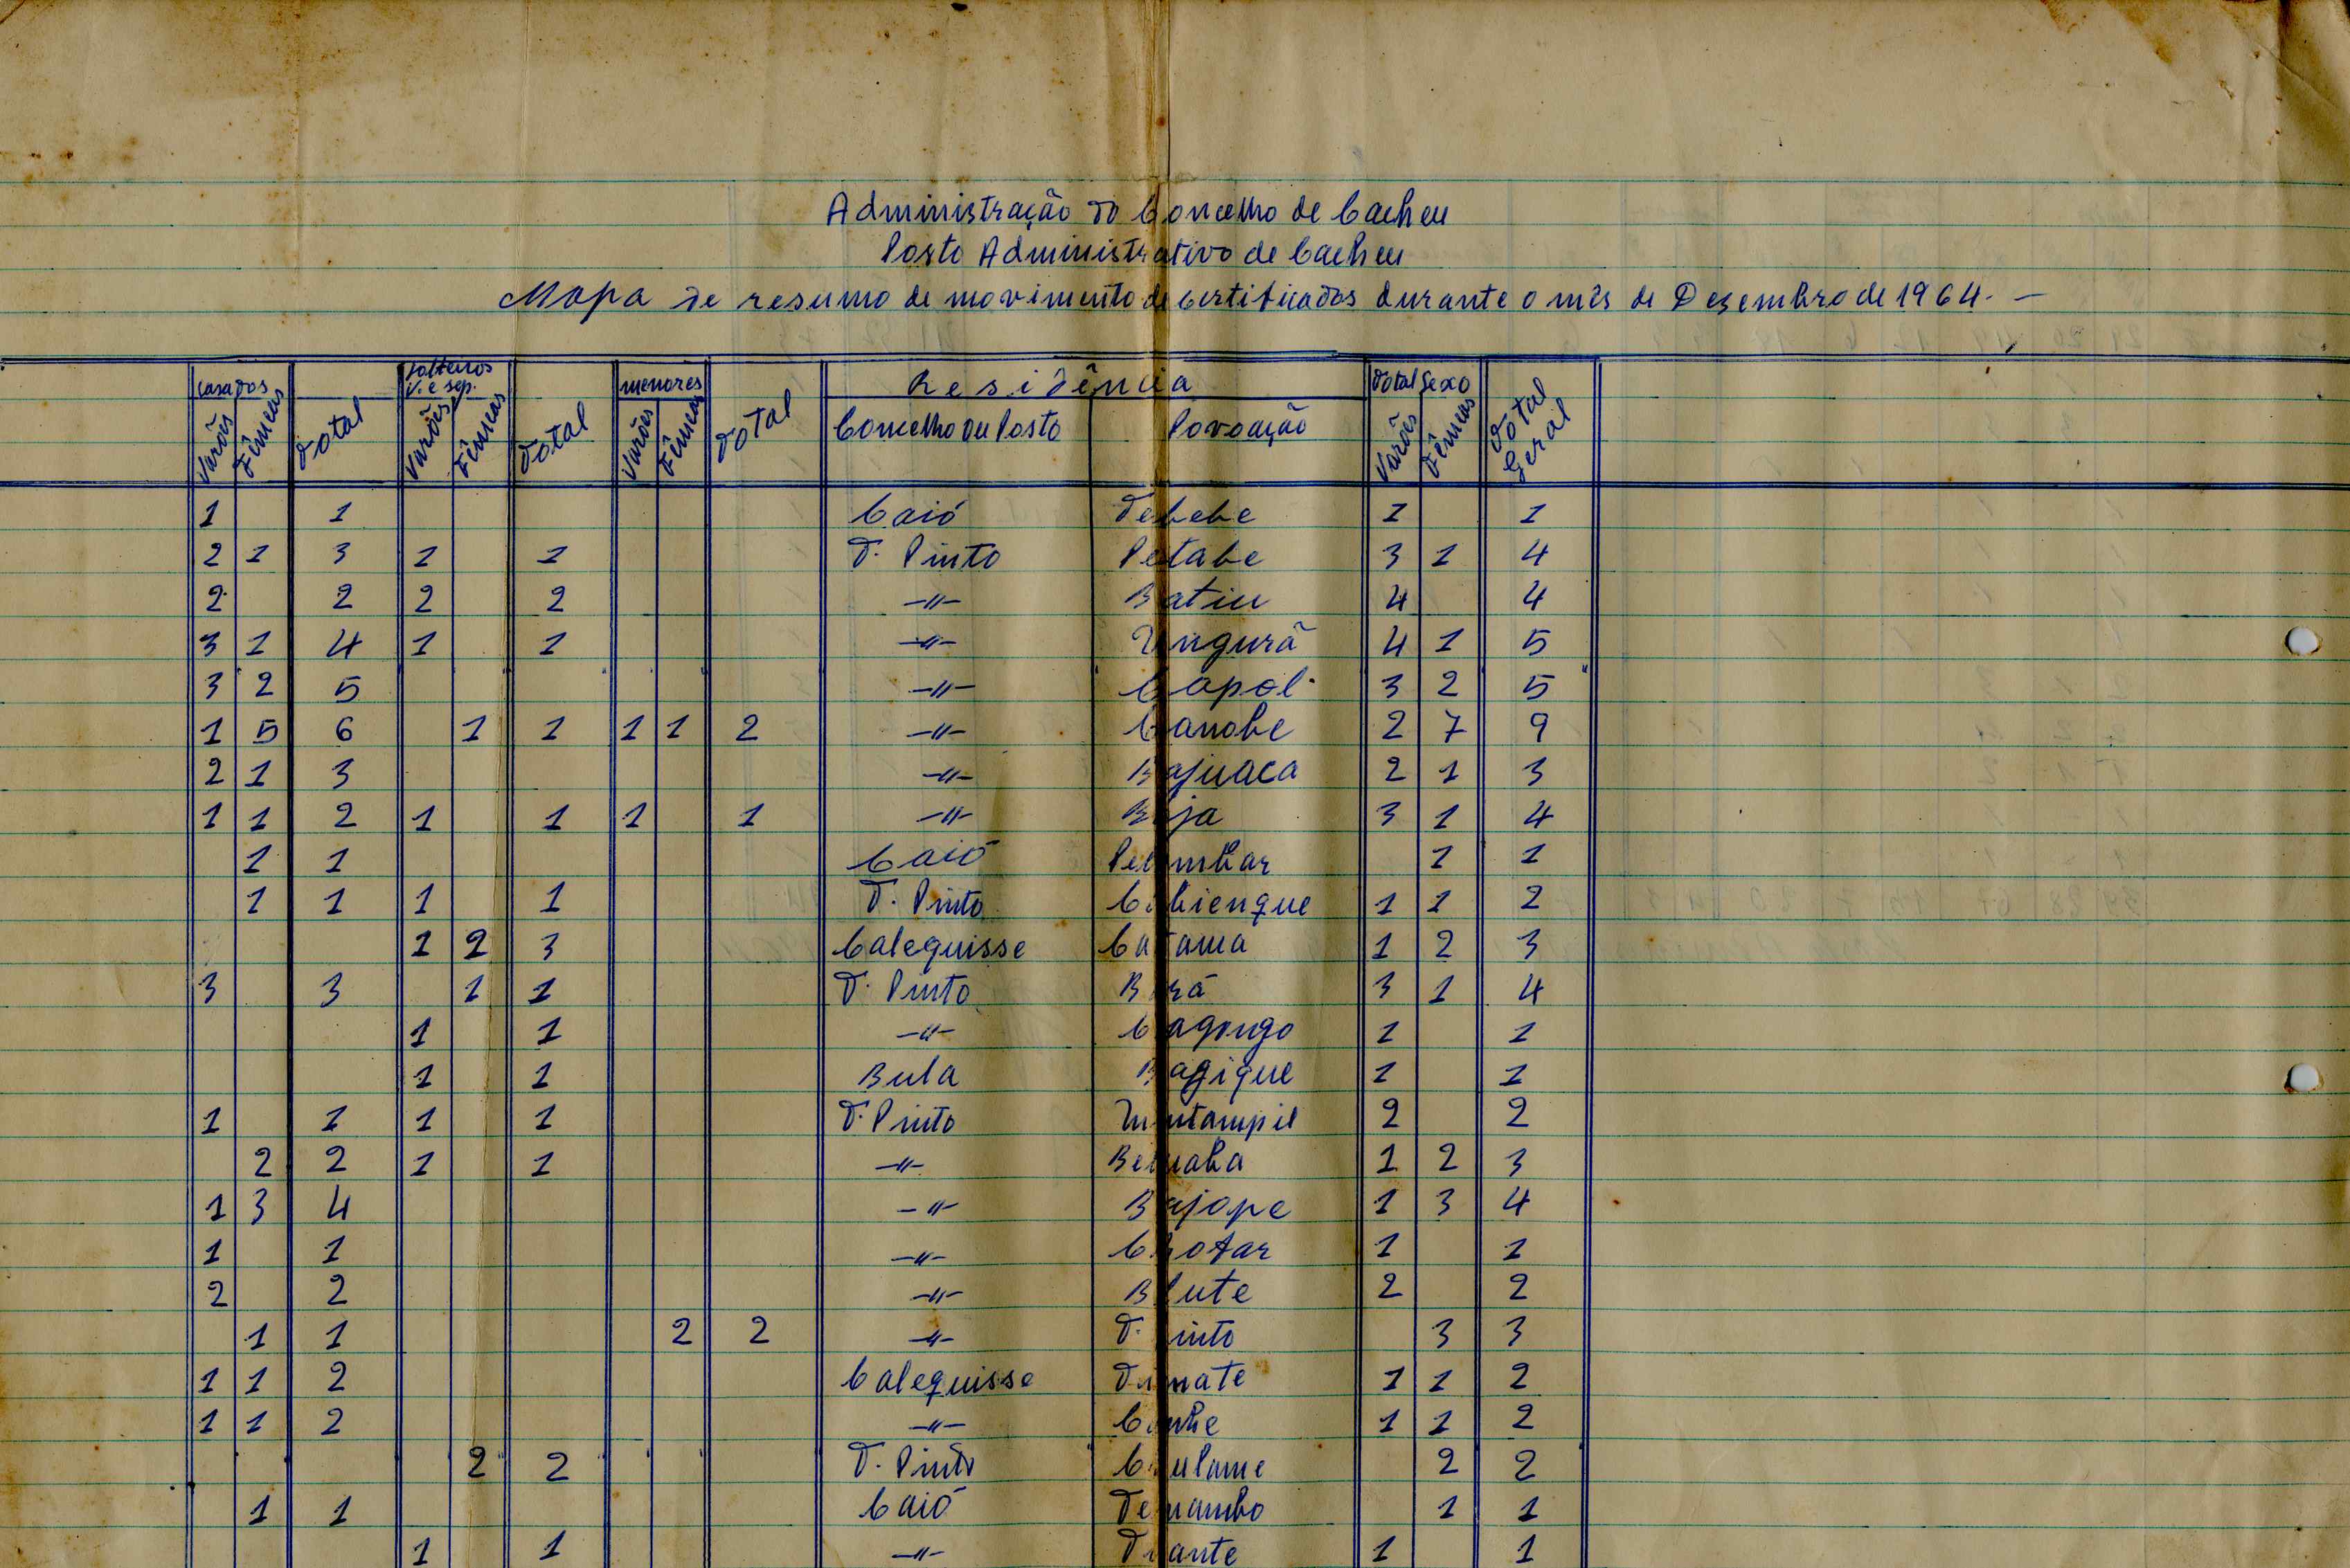 Administração do Concelho de Cacheu
Posto Administrativo de Cacheu
Mapa de resumo de movimento de certificados durante o mês de Dezembro de 1964. —
casados solteiros v. e sep. menores Residência Total Sexo
Varões Fêmeas Total Varões Fêmeas Total Varões Fêmeas Total Concelho ou Posto Povoação Varões Fêmeas Total Geral
1 1 Caió Tebebe 1 1
2 1 3 1 1 T. Pinto Petabe 3 1 4
2 2 2 2 —"— Batiu 4 4
3 1 4 1 1 —"— Ungurã 4 1 5
3 2 5 —"— Capol 3 2 5
1 5 6 1 1 1 1 2 —"— Canobe 2 7 9
2 1 3 —"— Bajuaca 2 1 3
1 1 2 1 1 1 1 —"— 3 1 4
1 1 Caió 1 1
1 1 1 1 T. Pinto 1 1 2
1 2 3 Calequisse Catama 1 2 3
3 3 1 1 T. Pinto 3 1 4
1 1 —"— Cagongo 1 1
1 1 Bula 1 1
1 1 1 1 T. Pinto 2 2
2 2 1 1 —"— 1 2 3
1 3 4 —"— Bajope 1 3 4
1 1 —"— 1 1
2 2 —"— 2 2
1 1 2 2 —"— T. Pinto 3 3
1 1 2 Calequisse 1 1 2
1 1 2 —"— 1 1 2
2 2 T. Pinto 2 2
1 1 Caió 1 1
1 1 —"— 1 1